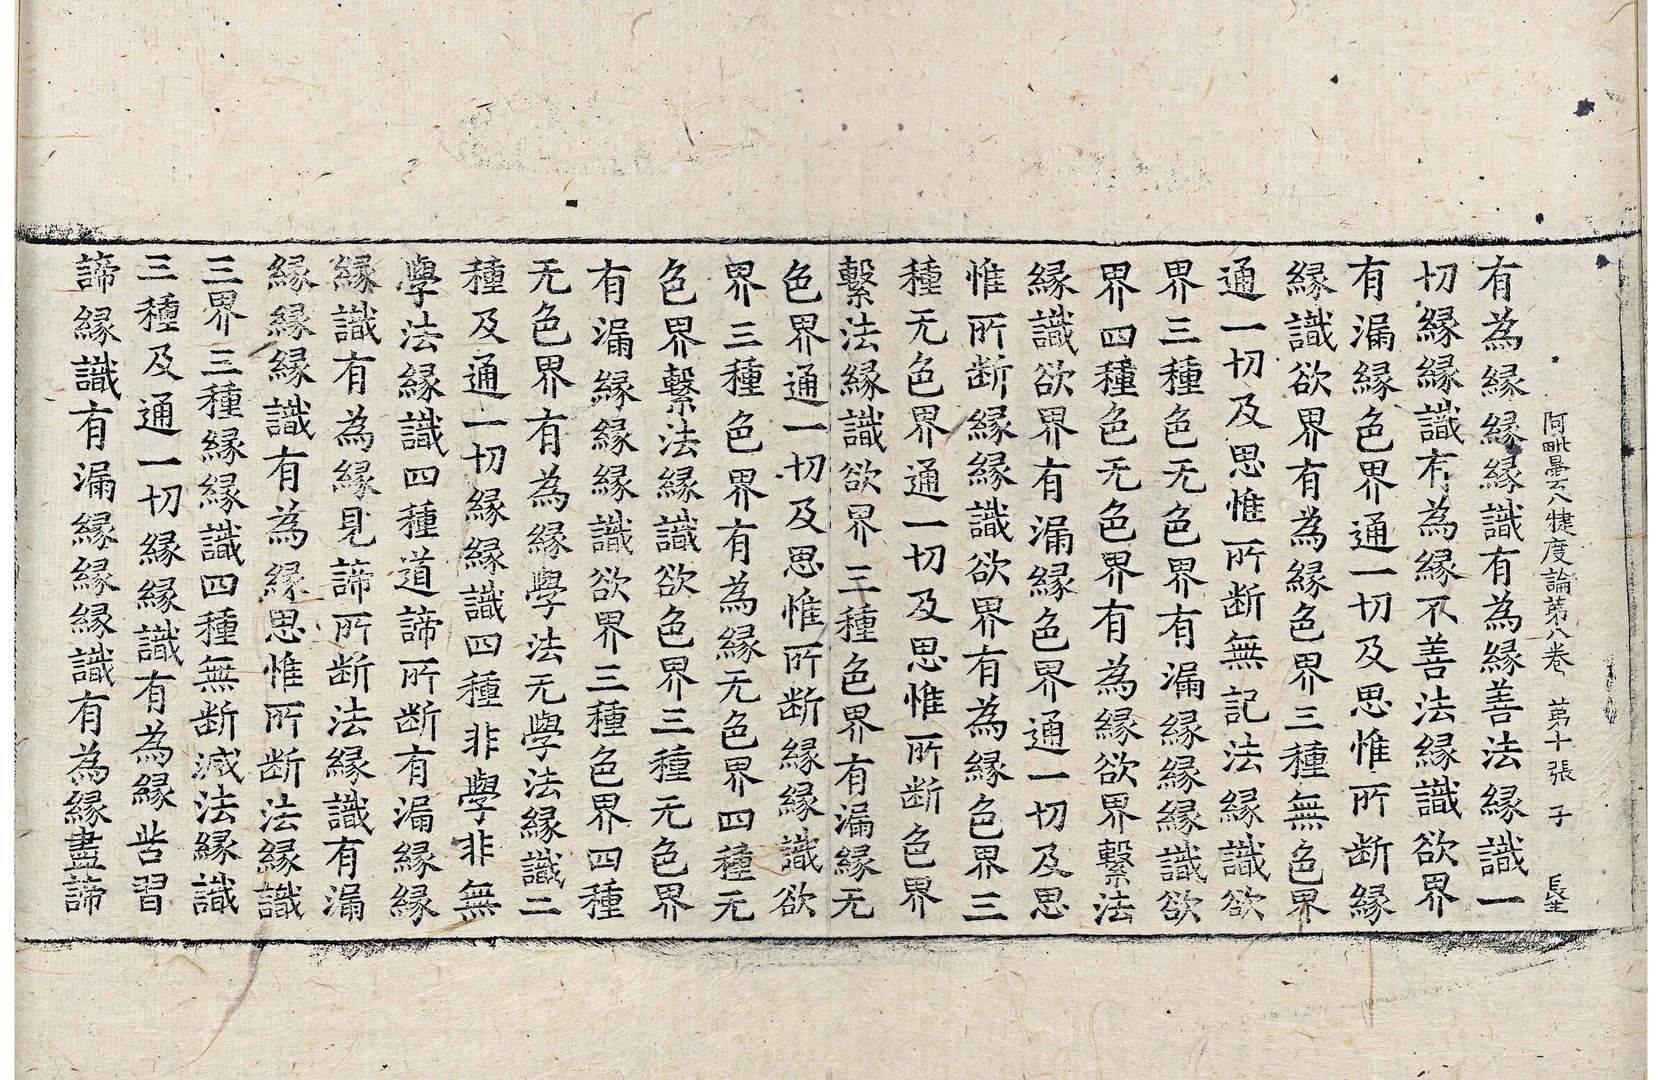 阿毗曇八犍度論第八卷 第十張 子 長生
有為緣緣緣識有為緣善法緣識一
切緣緣識有為緣不善法緣識欲界
有漏緣色界通一切及思惟所断緣
緣識欲界有為緣色界三種無色界
通一切及思惟所断無記法緣識欲
界三種色无色界有漏緣緣緣識欲
界四種色无色界有為緣欲界繫法
緣識欲界有漏緣色界通一切及思
惟所断緣緣識欲界有為緣色界三
種无色界通一切及思惟所断色界
繫法緣識欲界三種色界有漏緣无
色界通一切及思惟所断緣緣識欲
界三種色界有為緣无色界四種无
色界繫法緣識欲色界三種无色界
有漏緣緣緣識欲界三種色界四種
无色界有為緣學法无學法緣識二
種及通一切緣緣識四種非學非無
學法緣識四種道諦所断有漏緣緣
緣識有為緣見諦所断法緣識有漏
緣緣緣識有為緣思惟所断法緣識
三界三種緣緣識四種無断滅法緣識
三種及通一切緣緣識有為緣苦習
諦緣識有漏緣緣緣識有為緣盡諦